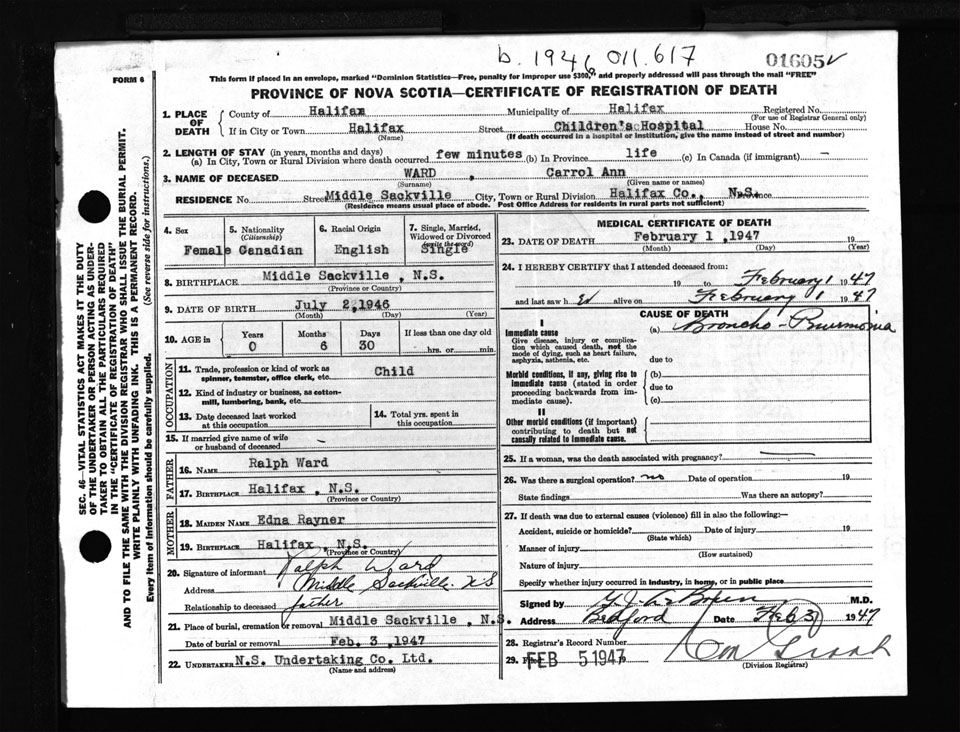 b. 1946 011.617
01605
FORM 6
This form if placed in an envelope, marked "Dominion Statistics—Free, penalty for improper use $300, and properly addressed will pass through the mail "FREE"
PROVINCE OF NOVA SCOTIA—CERTIFICATE OF REGISTRATION OF DEATH
1. PLACE OF DEATH
County of Halifax Municipality of Halifax Registered No.
(For use of Registrar General only)
If in City or Town Halifax Street Children's Hospital House No.
(Name) (If death occurred in a hospital or institution, give the name instead of street and number)
2. LENGTH OF STAY (in years, months and days)
(a) In City, Town or Rural Division where death occurred few minutes (b) In Province life (c) In Canada (if immigrant) —
3. NAME OF DECEASED WARD , Carrol Ann
(Surname) (Given name or names)
RESIDENCE No. Street Middle Sackville City, Town or Rural Division Halifax Co., N.S.
(Residence means usual place of abode. Post Office Address for residents in rural parts not sufficient)
4. Sex
Female
5. Nationality
(Citizenship)
Canadian
6. Racial Origin
English
7. Single, Married, Widowed or Divorced
(write the word)
Single
8. BIRTHPLACE Middle Sackville , N.S.
(Province or Country)
9. DATE OF BIRTH July 2, 1946
(Month) (Day) (Year)
10. AGE in
Years Months Days If less than one day old
0 6 30 hrs. or min.
OCCUPATION
11. Trade, profession or kind of work as spinner, teamster, office clerk, etc. Child
12. Kind of industry or business, as cotton-mill, lumbering, bank, etc.
13. Date deceased last worked at this occupation
14. Total yrs. spent in this occupation
15. If married give name of wife or husband of deceased —
FATHER
16. NAME Ralph Ward
17. BIRTHPLACE Halifax , N.S.
(Province or Country)
MOTHER
18. MAIDEN NAME Edna Rayner
19. BIRTHPLACE Halifax , N.S.
(Province or Country)
20. Signature of informant Ralph Ward
Address Middle Sackville N S
Relationship to deceased father
21. Place of burial, cremation or removal Middle Sackville , N.S.
Date of burial or removal Feb. 3, 1947
22. UNDERTAKER N.S. Undertaking Co. Ltd.
(Name and address)
MEDICAL CERTIFICATE OF DEATH
23. DATE OF DEATH February 1, 1947 19
(Month) (Day) (Year)
24. I HEREBY CERTIFY that I attended deceased from:
19 to February 1 1947
and last saw h er alive on February 1 1947
CAUSE OF DEATH
I
Immediate cause
Give disease, injury or complication which caused death, not the mode of dying, such as heart failure, asphyxia, asthenia, etc.
(a) Broncho-Pneumonia
due to
Morbid conditions, if any, giving rise to immediate cause (stated in order proceeding backwards from immediate cause).
(b)
due to
(c)
II
Other morbid conditions (if important) contributing to death but not causally related to immediate cause.
25. If a woman, was the death associated with pregnancy? —
26. Was there a surgical operation? no Date of operation 19
State findings Was there an autopsy?
27. If death was due to external causes (violence) fill in also the following:—
Accident, suicide or homicide? Date of injury 19
(State which)
Manner of injury
(How sustained)
Nature of injury
Specify whether injury occurred in industry, in home, or in public place
Signed by M.D.
Address Bedford Date Feb 3 1947
28. Registrar's Record Number
29. FEB 5 1947
(Division Registrar)
SEC. 46—VITAL STATISTICS ACT MAKES IT THE DUTY
OF THE UNDERTAKER OR PERSON ACTING AS UNDER-
TAKER TO OBTAIN ALL THE PARTICULARS REQUIRED
IN THE "CERTIFICATE OF REGISTRATION OF DEATH"
AND TO FILE THE SAME WITH THE DIVISION REGISTRAR WHO SHALL ISSUE THE BURIAL PERMIT.
WRITE PLAINLY WITH UNFADING INK. THIS IS A PERMANENT RECORD.
Every item of information should be carefully supplied. (See reverse side for instructions.)